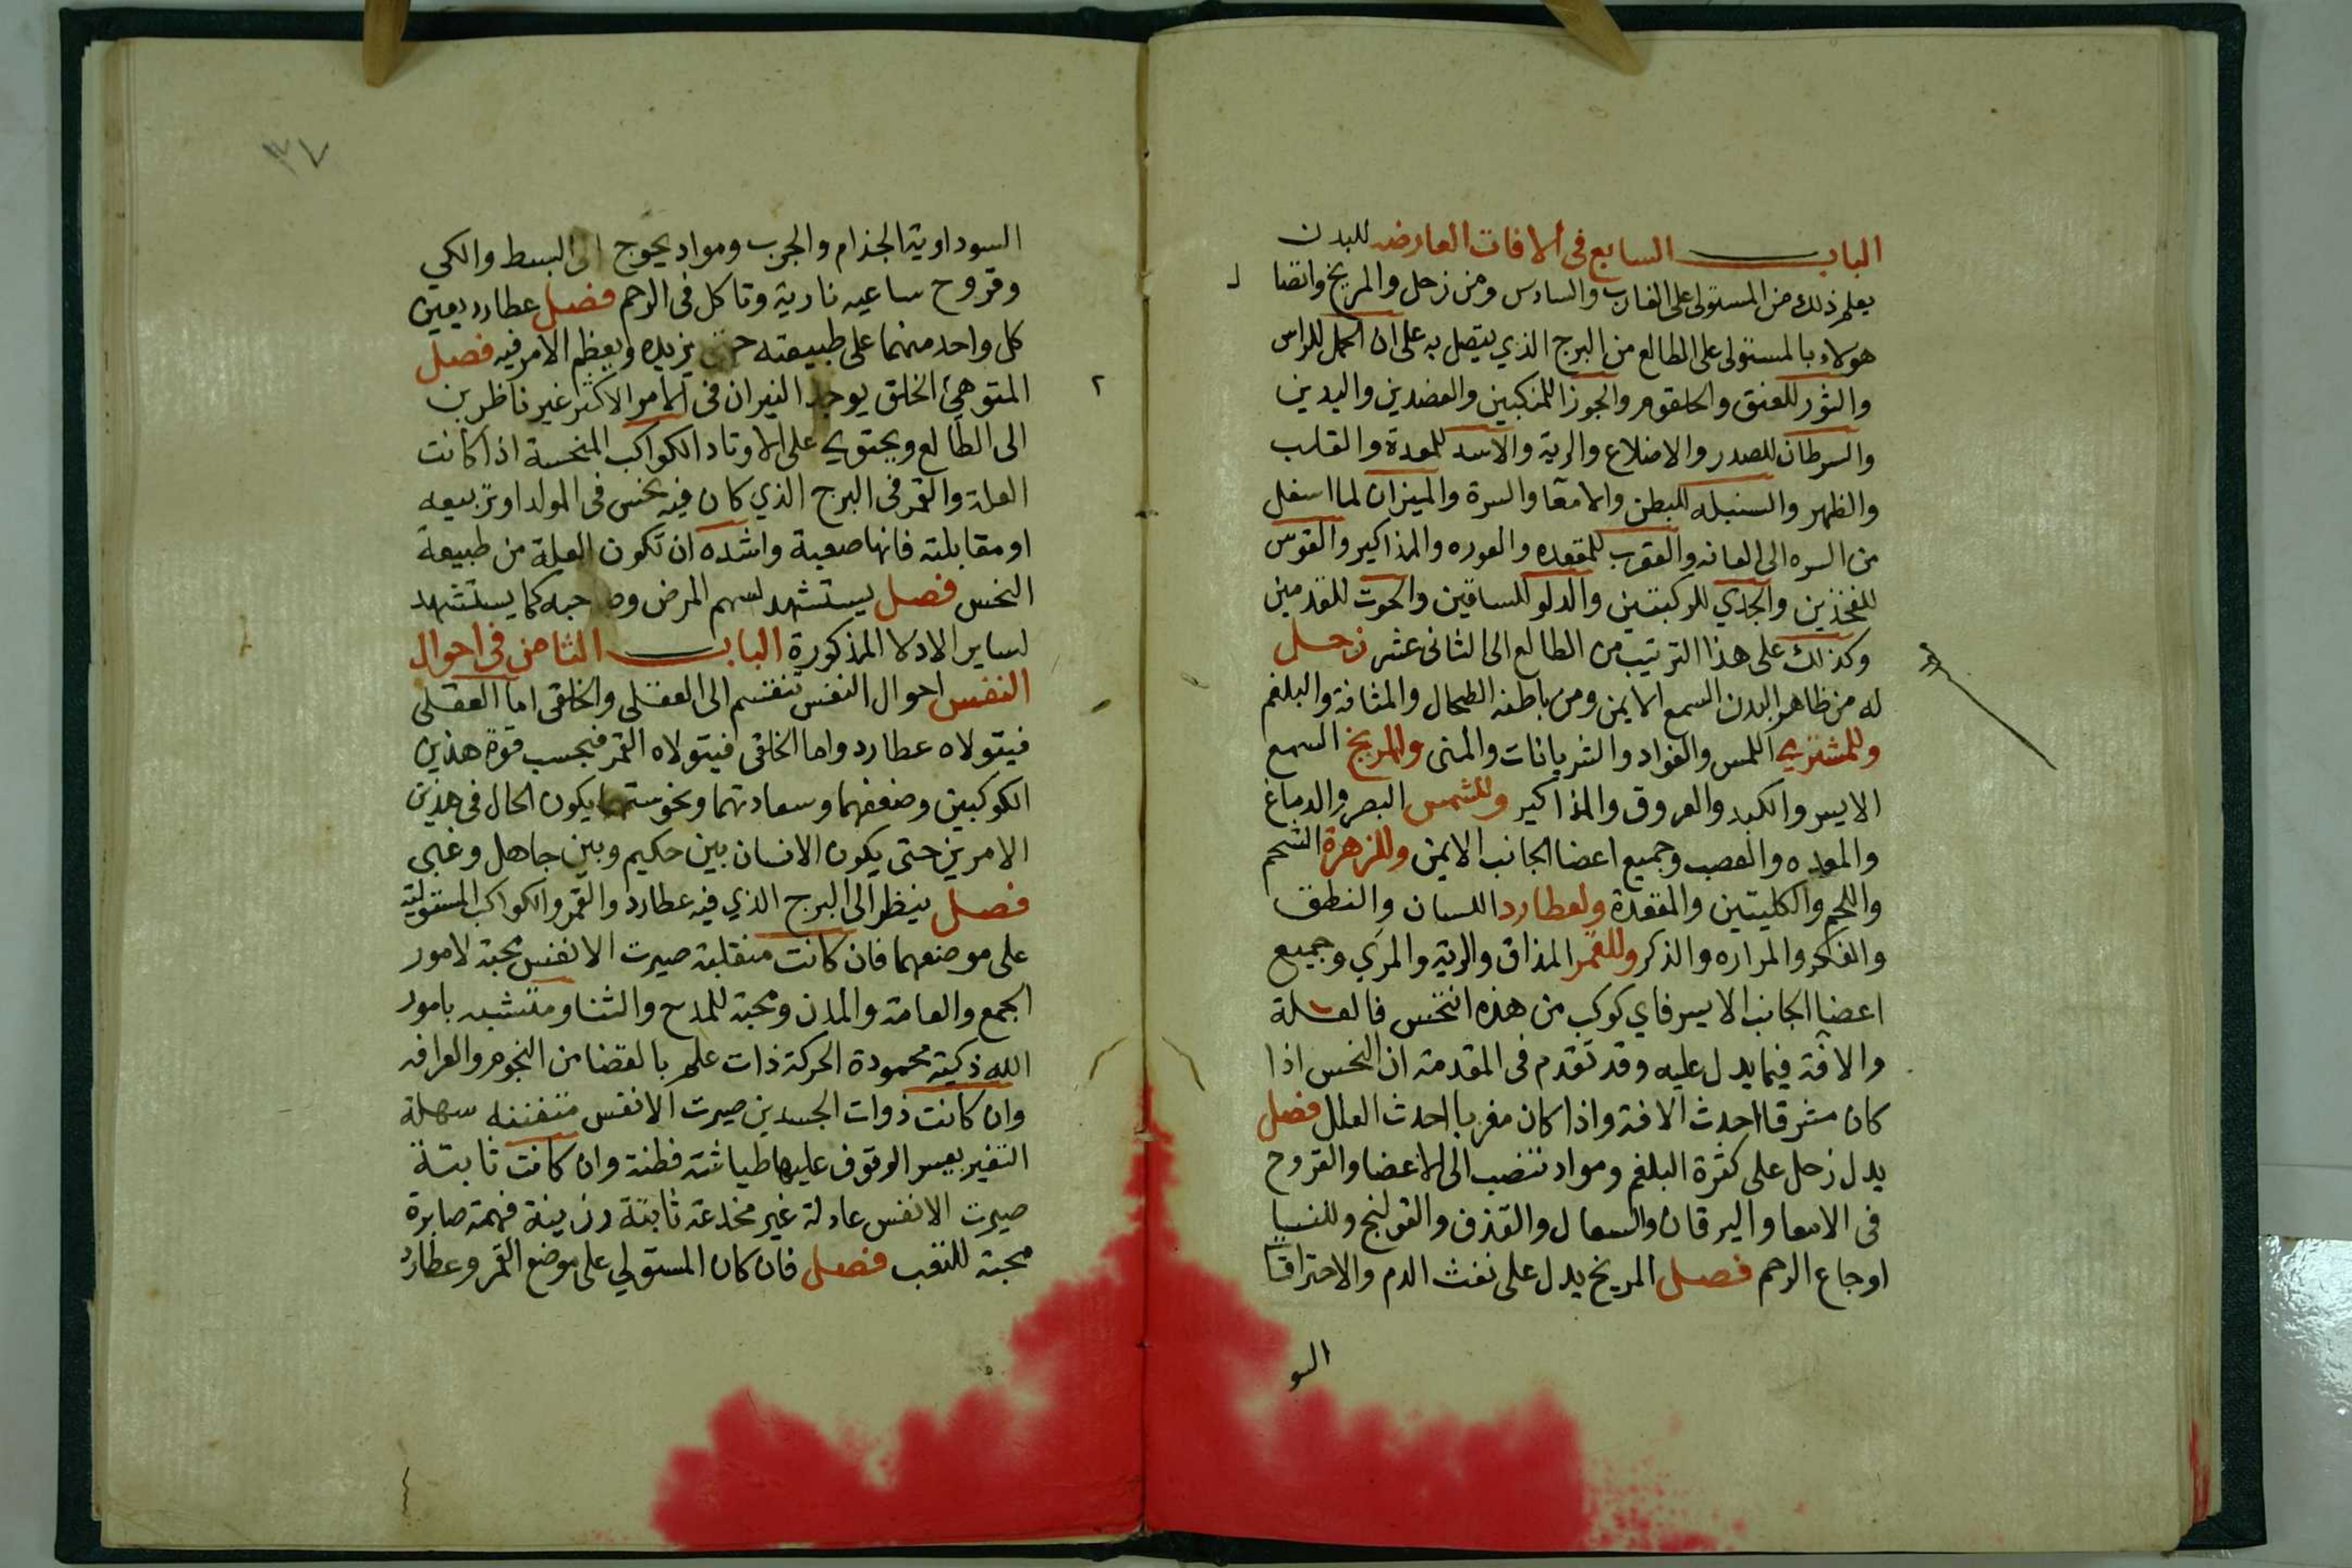 الباب السابع فى الافات العارضه للبدن
يعلم ذلك من المستولى على الغارب والسادس ومن زحل والمريخ واتصا ل
هولاء بالمستولى على الطالع من البرج الذي يتصل به على ان الحمل للراس
والثور للعنق والحلقوم والجوزا للمنكبين والعضدين واليدين
والسرطان للصدر والاضلاع والرية والاسد للمعدة والقلب
والظهر والسنبله للبطن والامعا والسرة والميزان لما اسفل
من السره الى العانه والعقرب للمقعده والعوره والمذاكير والقوس
للفخذين والجدي للركبتين والدلو للساقين والحوت للقدمين
وكذلك على هذا الترتيب من الطالع الى الثانى عشر زحل
له من ظاهر البدن السمع الايمن ومن باطنه الطحال والمثانة والبلغم
وللمشتري اللمس والفواد والشريانات والمنى وللمريخ السمع
الايسر والكبد والعروق والمذاكير وللشمس البصر والدماغ
والمعده والعصب وجميع اعضا الجانب الايمن وللزهرة الشحم
واللحم والكليتين والمقعدة ولعطارد اللسان والنطق
والفكر والمراره والذكر وللقمر المذاق والرية والمري وجميع
اعضا الجانب الايسر فاي كوكب من هذه انتحس فالعلة
والافة فيما يدل عليه وقد تقدم فى المقدمة ان النحس اذا
كان مشرقا احدث الافة واذا كان مغربا احدث العلل فصل
يدل زحل على كثرة البلغم ومواد تنصب الى الاعضا والقروح
فى الامعا واليرقان والسعال والقذف والقولنج وللنسا
اوجاع الرحم فصل المريخ يدل على نفث الدم والاحتراقا
السو
٣٧
السوداوية الجذام والجرب ومواد يحوج الى البسط والكي
وقروح ساعيه نارية وتاكل فى الرحم فصل عطارد يعين
كل واحد منهما على طبيعته حتى يزيده ويعظم الامر فيه فصل
المتوهئ الخلق يوجد النيران فى الامر الاكثر غير ناظرين ٢
الى الطالع ويحتوي على الاوتاد الكواكب المنحسة اذا كانت
العلة والقمر فى البرج الذي كان فيه نحس فى المولد او تربيعه
او مقابلته فانها صعبة واشده ان تكون العلة من طبيعة
النحس فصل يستشهد لسهم المرض وصاحبه كما يستشهد
لساير الادلا المذكورة الباب الثامن فى احوال
النفس احوال النفس تنقسم الى العقلى والخلقى اما العقلى
فيتولاه عطارد واما الخلقى فيتولاه القمر فبحسب قوة هذين
الكوكبين وضعفهما وسعادتهما ونحوستهما يكون الحال فى هذين
الامرين حتى يكون الانسان بين حكيم وبين جاهل وغبى
فصل ينظر الى البرج الذي فيه عطارد والقمر والكواكب المستولية
على موضعهما فان كانت منقلبة صيرت الانفس محبة لامور
الجمع والعامة والمدن ومحبة للمدح والثنا ومتشبه بامور
الله ذكية محمودة الحركة ذات علم بالقضا من النجوم والعرافه
وان كانت ذوات الجسدين صيرت الانفس متفننه سهلة
التغير بعسر الوقوف عليها طياشة فطنة وان كانت ثابتة
صيرت الانفس عادلة غير مخدعة ثابتة رزينة فهمة صابرة
محبة للتعب فصل فان كان المستولي على موضع القمر وعطارد